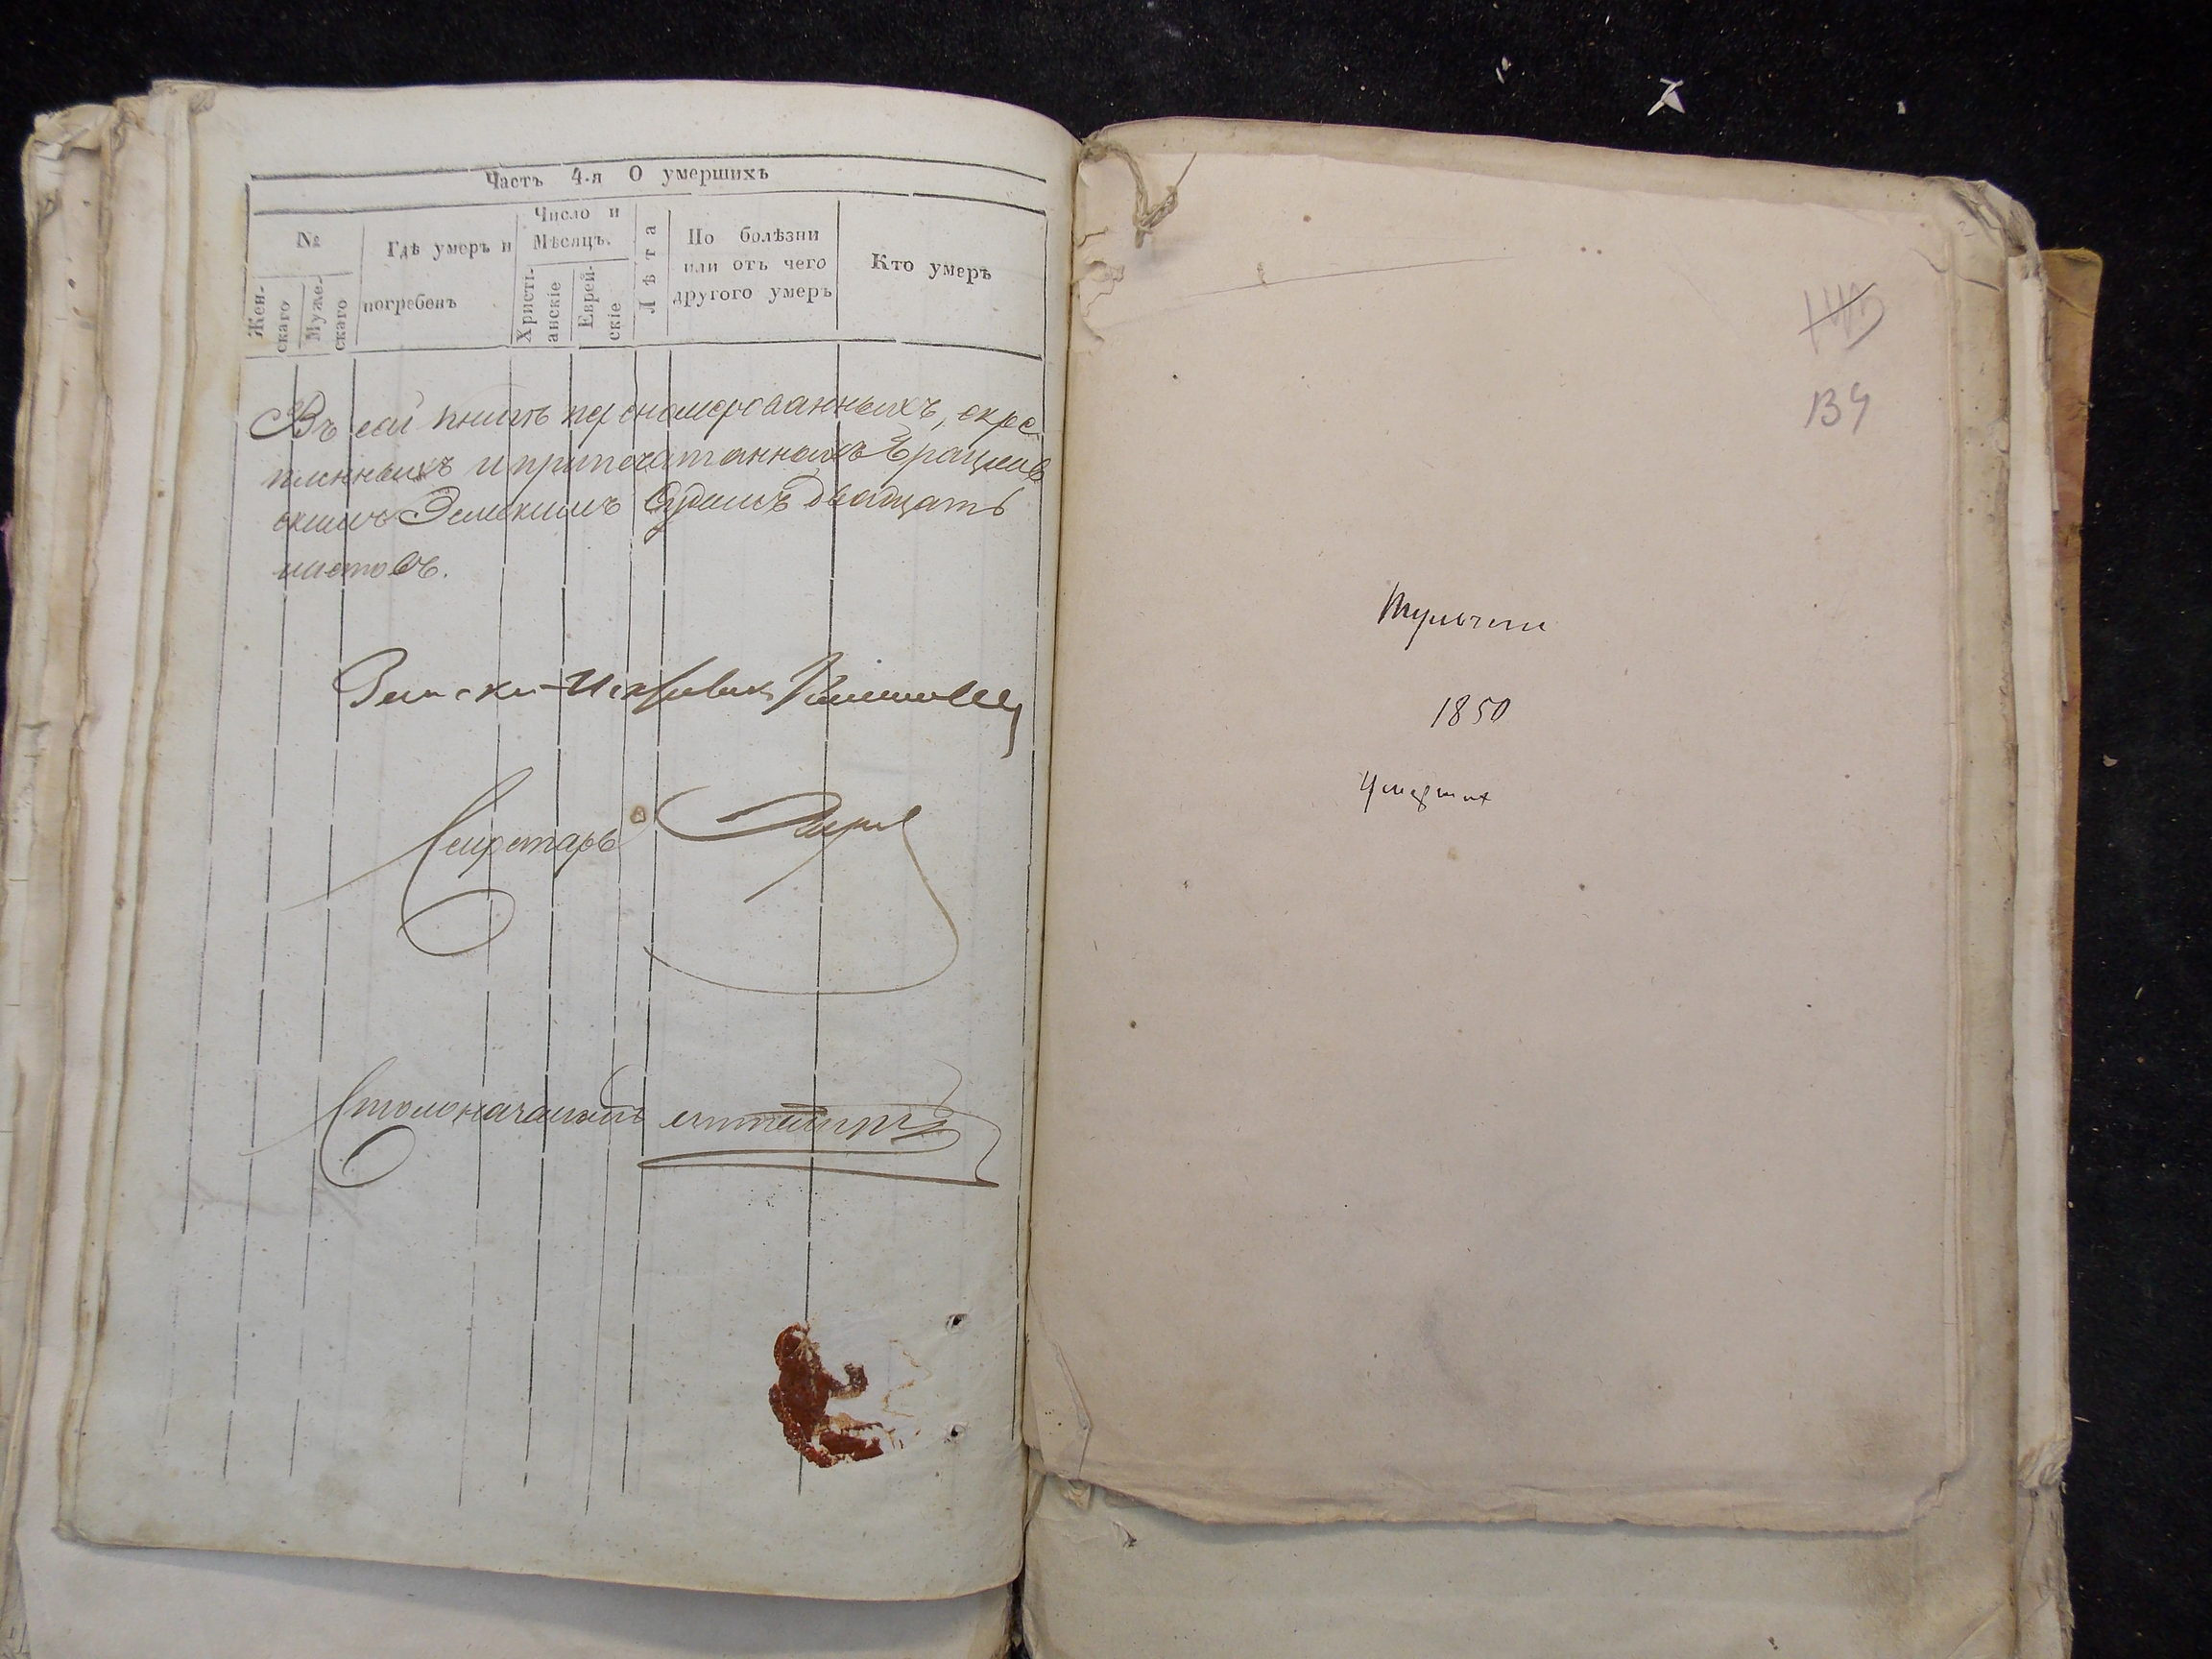 Часть 4-я О умершихъ
№
Жен-
скаго
Муже-
скаго
Гдѣ умеръ и
погребенъ
Число и
Мѣсяцъ.
Христі-
анскіе
Еврей-
скіе
Лѣта
По болѣзни
или отъ чего
другого умеръ
Кто умеръ
Въ сей книгѣ пронумерованныхъ, скре
пленныхъ и припечатанныхъ Брацлав
скимъ Земскимъ Судомъ двадцать
листовъ.
Секретарь
Столоначальникъ
134
Тульчин
1850
Умерших